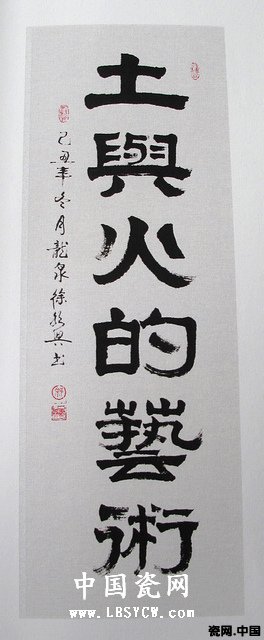 土與火的藝術
己丑年冬月龍泉徐朝興书
中国瓷网
www.LBSYCW.com
瓷网.中国